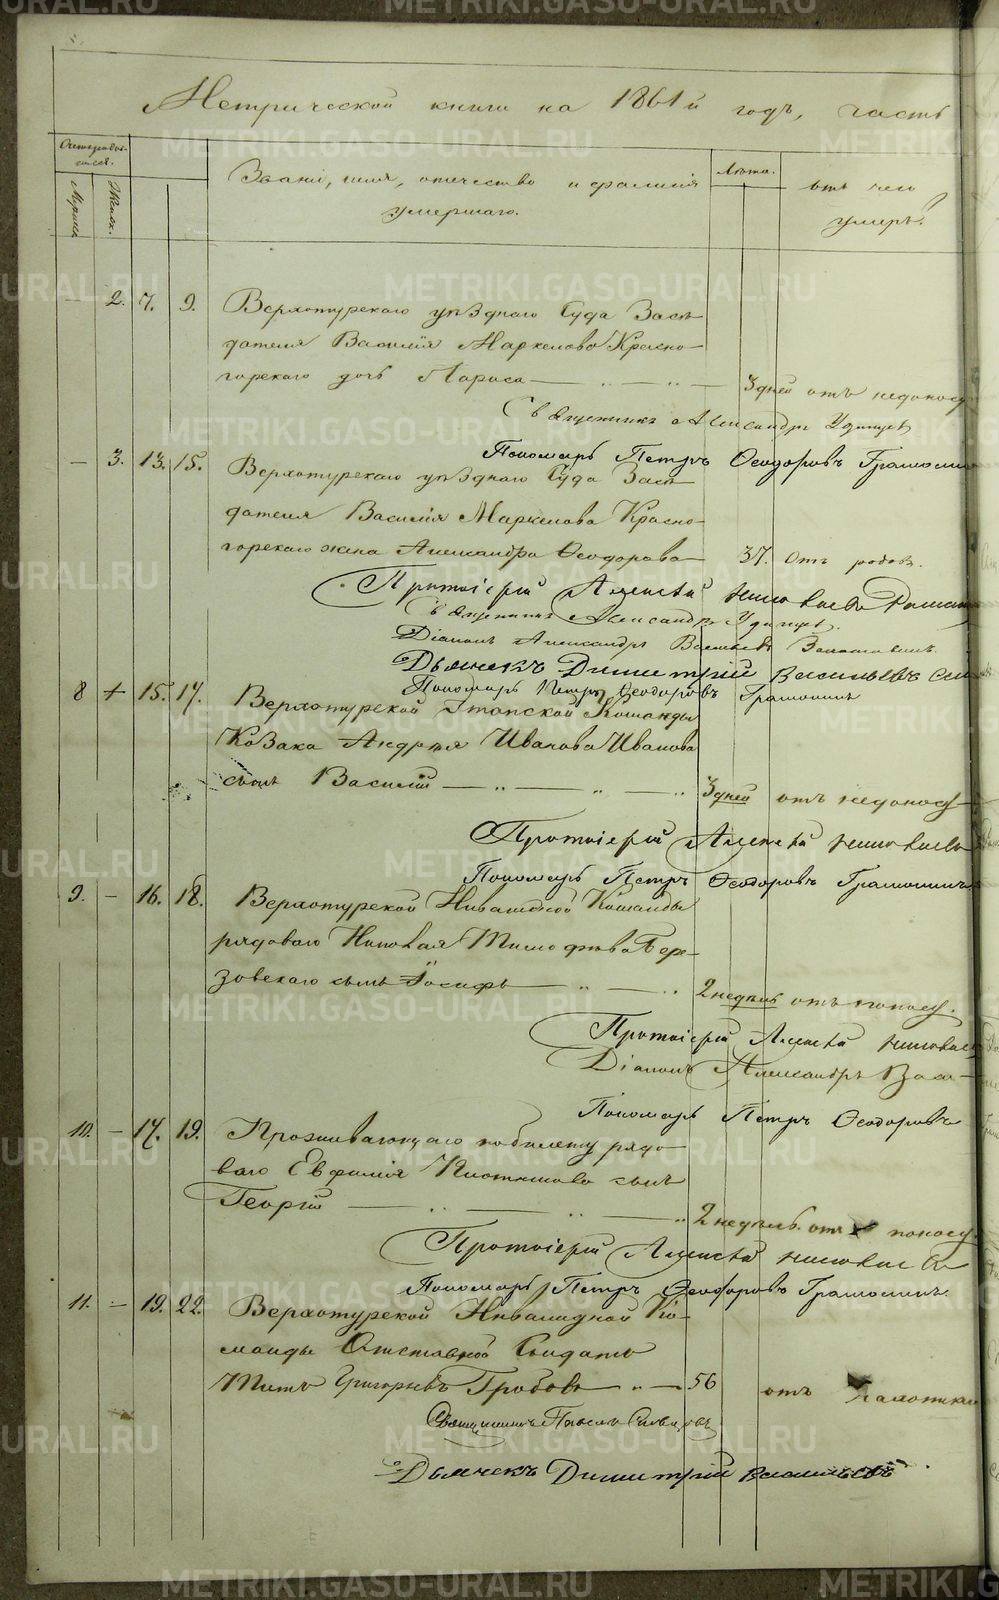 Метрической книги на 1861й годъ, часть
Счетъ умер-
шихъ.
Мужеск.
Женск.
Званіе, имя, отчество и фамилія
умершаго.
Лѣта.
отъ чего
умеръ.
— 2. 7. 9. Верхотурскаго уѣзднаго Суда Засѣ-
дателя Василія Маркелова Красно-
горскаго дочь Лариса — 3 дней отъ недоносу
Священникъ Александръ Удинцевъ
Пономарь Петръ Ѳеодоровъ Грамолинъ
— 3. 13. 15. Верхотурскаго уѣзднаго Суда Засѣ-
дателя Василія Маркелова Красно-
горскаго жена Александра Ѳеодорова — 37. отъ родовъ.
Протоіерей Алексѣй Николаевъ
Священникъ Александръ Удинцевъ.
Діаконъ Александръ Васильевъ
Дьячекъ Димитрій Васильевъ
Пономарь Петръ Ѳеодоровъ Грамолинъ
8 + 15. 17. Верхотурской Этапской Команды
Козака Андрея Иванова Иванова
сынъ Василій — „ — „ — „ 3 дней отъ недоносу
Протоіерей Алексѣй Николаевъ
Пономарь Петръ Ѳеодоровъ Грамолинъ
9. — 16. 18. Верхотурской Инвалидной Команды
рядоваго Николая Тимофѣева Бере-
зовскаго сынъ Іосифъ — „ — „ 2 недѣль отъ поносу.
Протоіерей Алексѣй Николаевъ
Діаконъ Александръ
Пономарь Петръ Ѳеодоровъ
10. — 17. 19. Проживающаго по билету рядо-
ваго Евфимія сынъ
Георгій — „ — „ — „ 2 недѣль. отъ поносу
Протоіерей Алексѣй Николаевъ
Пономарь Петръ Ѳеодоровъ Грамолинъ
11. — 19. 22. Верхотурской Инвалидной Ко-
манды Отставной Солдатъ
Титъ Григорьевъ Гробовъ — „ — 56 отъ чахотки
Священникъ Павелъ
Дьячекъ Димитрій Васильевъ
METRIKI.GASO-URAL.RU